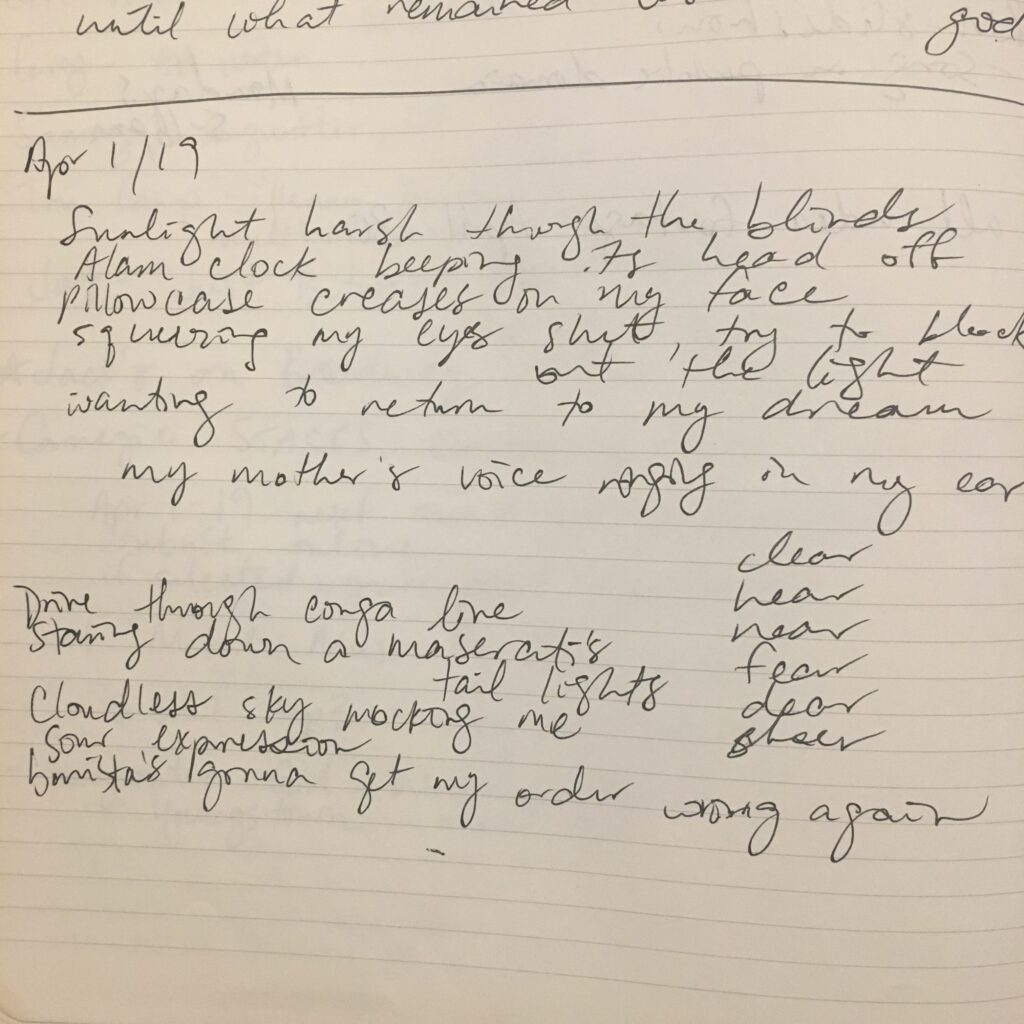 until what remained good
Apr 1/19
Sunlight harsh through the blinds
Alarm clock beeping its head off
pillowcase creases on my face
squeezing my eyes shut, try to block
out the light
wanting to return to my dream
my mother's voice ringing in my ear
clear
hear
near
fear
dear
sheer
Drive through conga line
staring down a maserati's
tail lights
Cloudless sky mocking me
sour expression
barista's gonna get my order wrong again